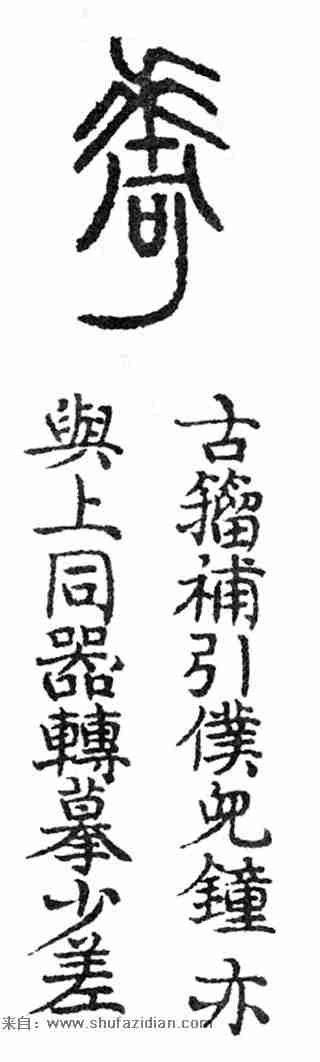 古籀補引僕兒鐘亦
與上同器轉摹少差
来自：www.shufazidian.com